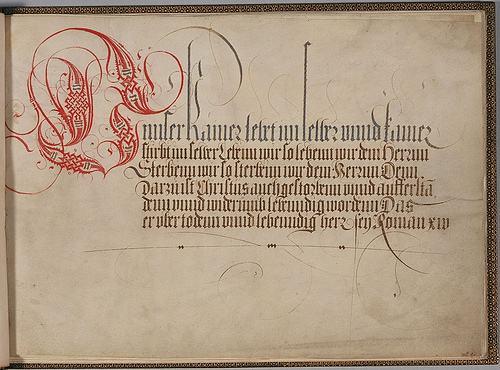 Unnser kainer lebt im selber unnd kainer
stirbt im selber Lebenn wir so lebenn wir dem Herrnn
Sterbenn wir so sterbenn wir dem Herrnn Denn
Darzu ist Christus auch gestorbenn unnd aufferstā
denn unnd widerumb lebenndig wordenn Das
er uber todtenn unnd lebenndig herr sey Roman xiv